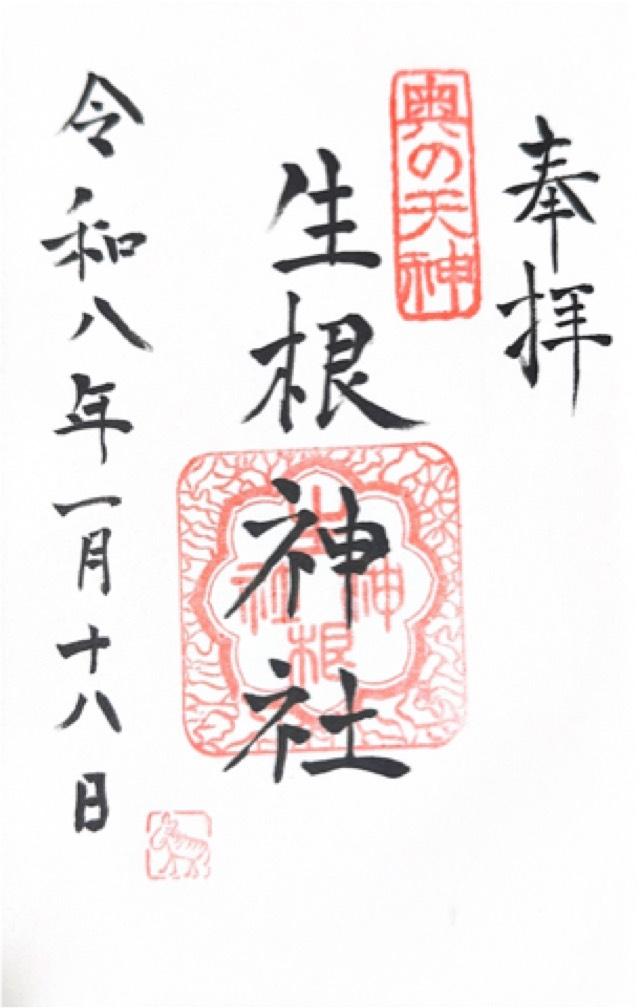 奉拝
奥の天神
生根神社
生根神社
令和八年一月十八日